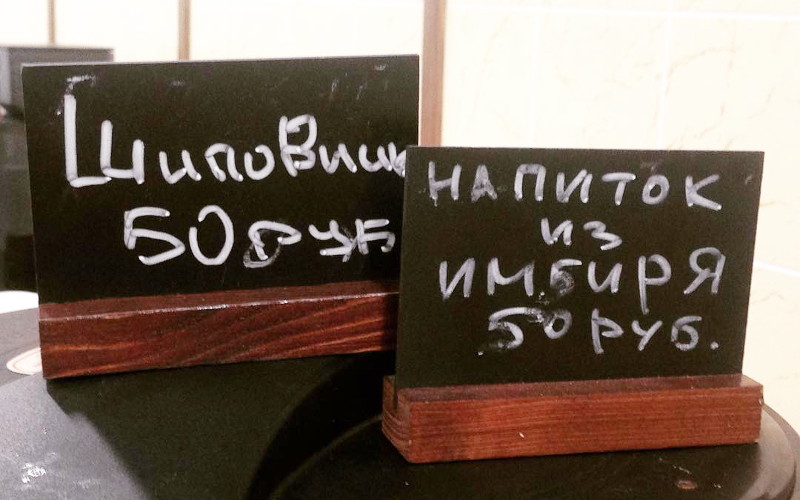 Шиповник
50 руб
НАПИТОК
ИЗ
ИМБИРЯ
50 руб.